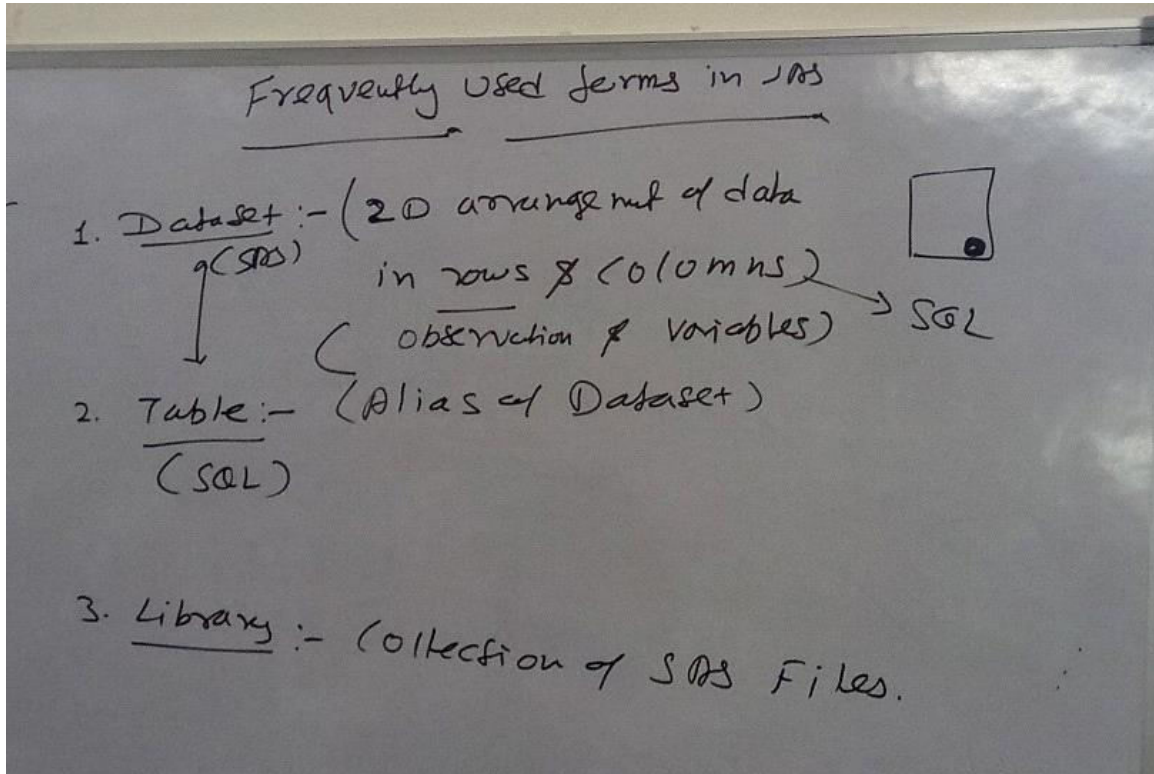 Frequently Used terms in SAS
1. Dataset :- (2D arrangement of data
(SAS)
in rows & Colomns)
SQL
( observation & variables)
2. Table :- (Alias of Dataset)
(SQL)
3. Library :- Collection of SAS Files.